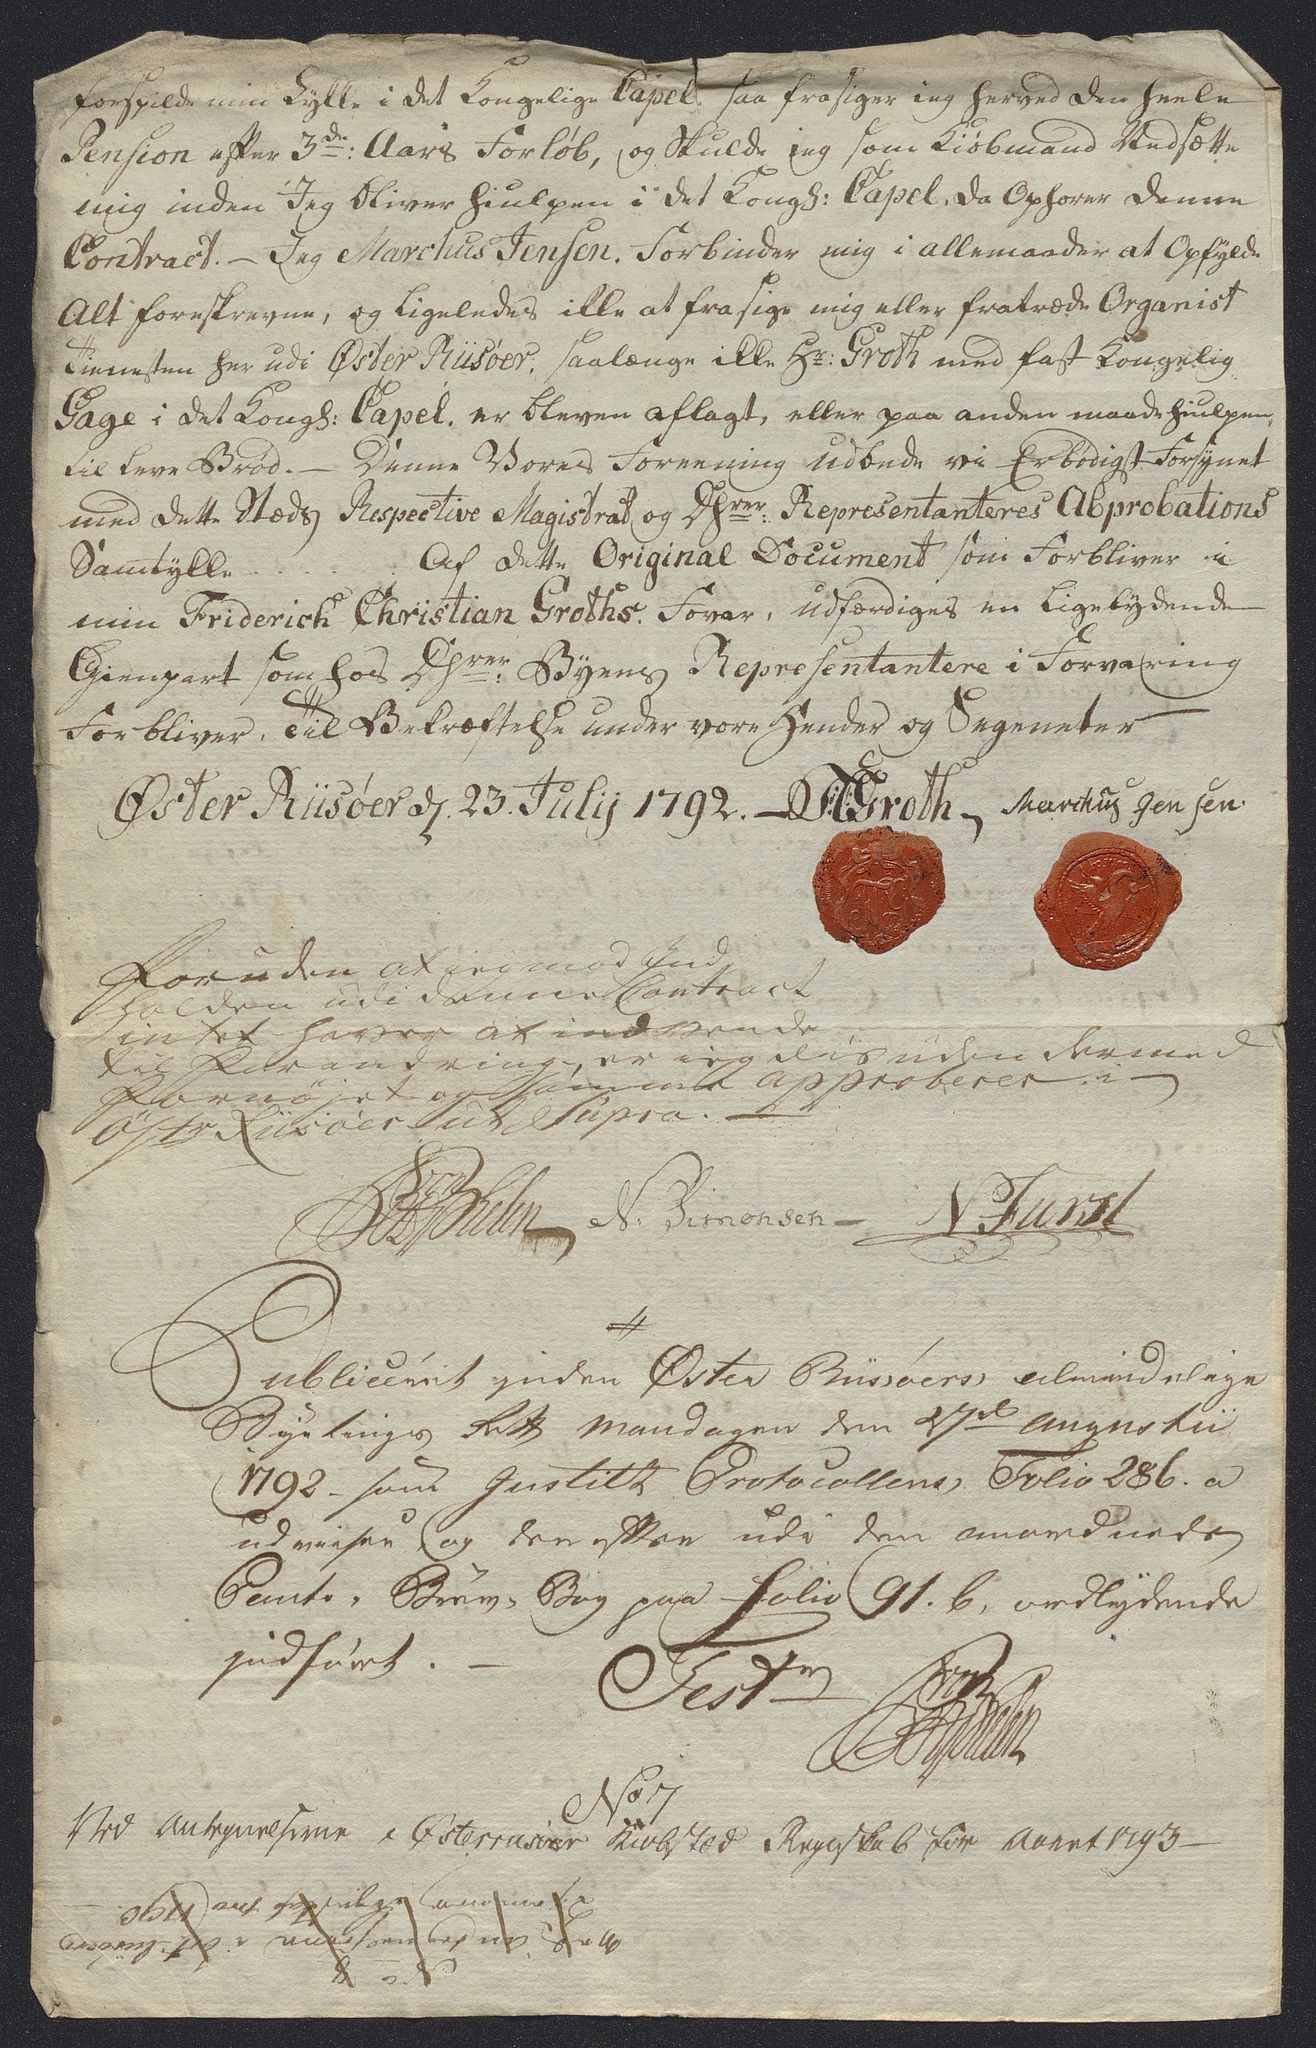 forspilde min Lykke i det Kongelige Capel. saa frasiger ieg herved den heele
Pension efter 3de: Aars Forløb, og skulde ieg som Kiøbmand Nedsætte
mig inden Jeg bliver hiulpen i det Kongl: Capel. da Ophører denne
Contract. – Jeg Marchus Jensen. Forbinder mig i allemaader at Opfylde
Alt foreskrevne, og Ligeledes ikke at frasige mig eller fratræde Organist
Tienesten her udi Øster Riisøer. saalænge ikke Hr: Groth med fast Kongelig
Gage i det Kongl: Capel. er bleven aflagt, eller paa anden maade hiulpen,
til leve Brød. – Denne Vores Foreening udbede vi Erbødigst Forsynet
med dette Stæds Respective Magistrat og Dhrrer: Representanteres Abprobations
Samtykke Af dette Original Document som Forbliver i
min Friderich Christian Groths. Forvar, udfærdiges en Ligelydende
Gienpart som hos Dhrrer: Byens Representantere i Forvaring
Forbliver. Til Bekræftelse under vore Hender og Segneter
Øster Riisøer d. 23. Julij 1792. – FCGroth, Marchus Jensen.
Foruden at ieg mod Ind-
holden udi denne Contract
intet haver at indvende
til Forandring, er ieg des uden dermed
Fornøjet og samme approberer i
Østr Riisøer ut Supra. –
N. Simonsen – N Furst
Publiceret inden Øster Riisøers almindelige
Byetings Rett Mandagen den 27de Augustii
1792 – som Justitz Protocollens Folio 286. a
udviiser og derefter udi den anordnede
Pante, Brev, Bog paa folio 91. b, ordlydende
indført. – Test
No 7
Ved Antegnelserne i Østerriisøer Kiøbstæd Regnskab for Aaret 1793 –